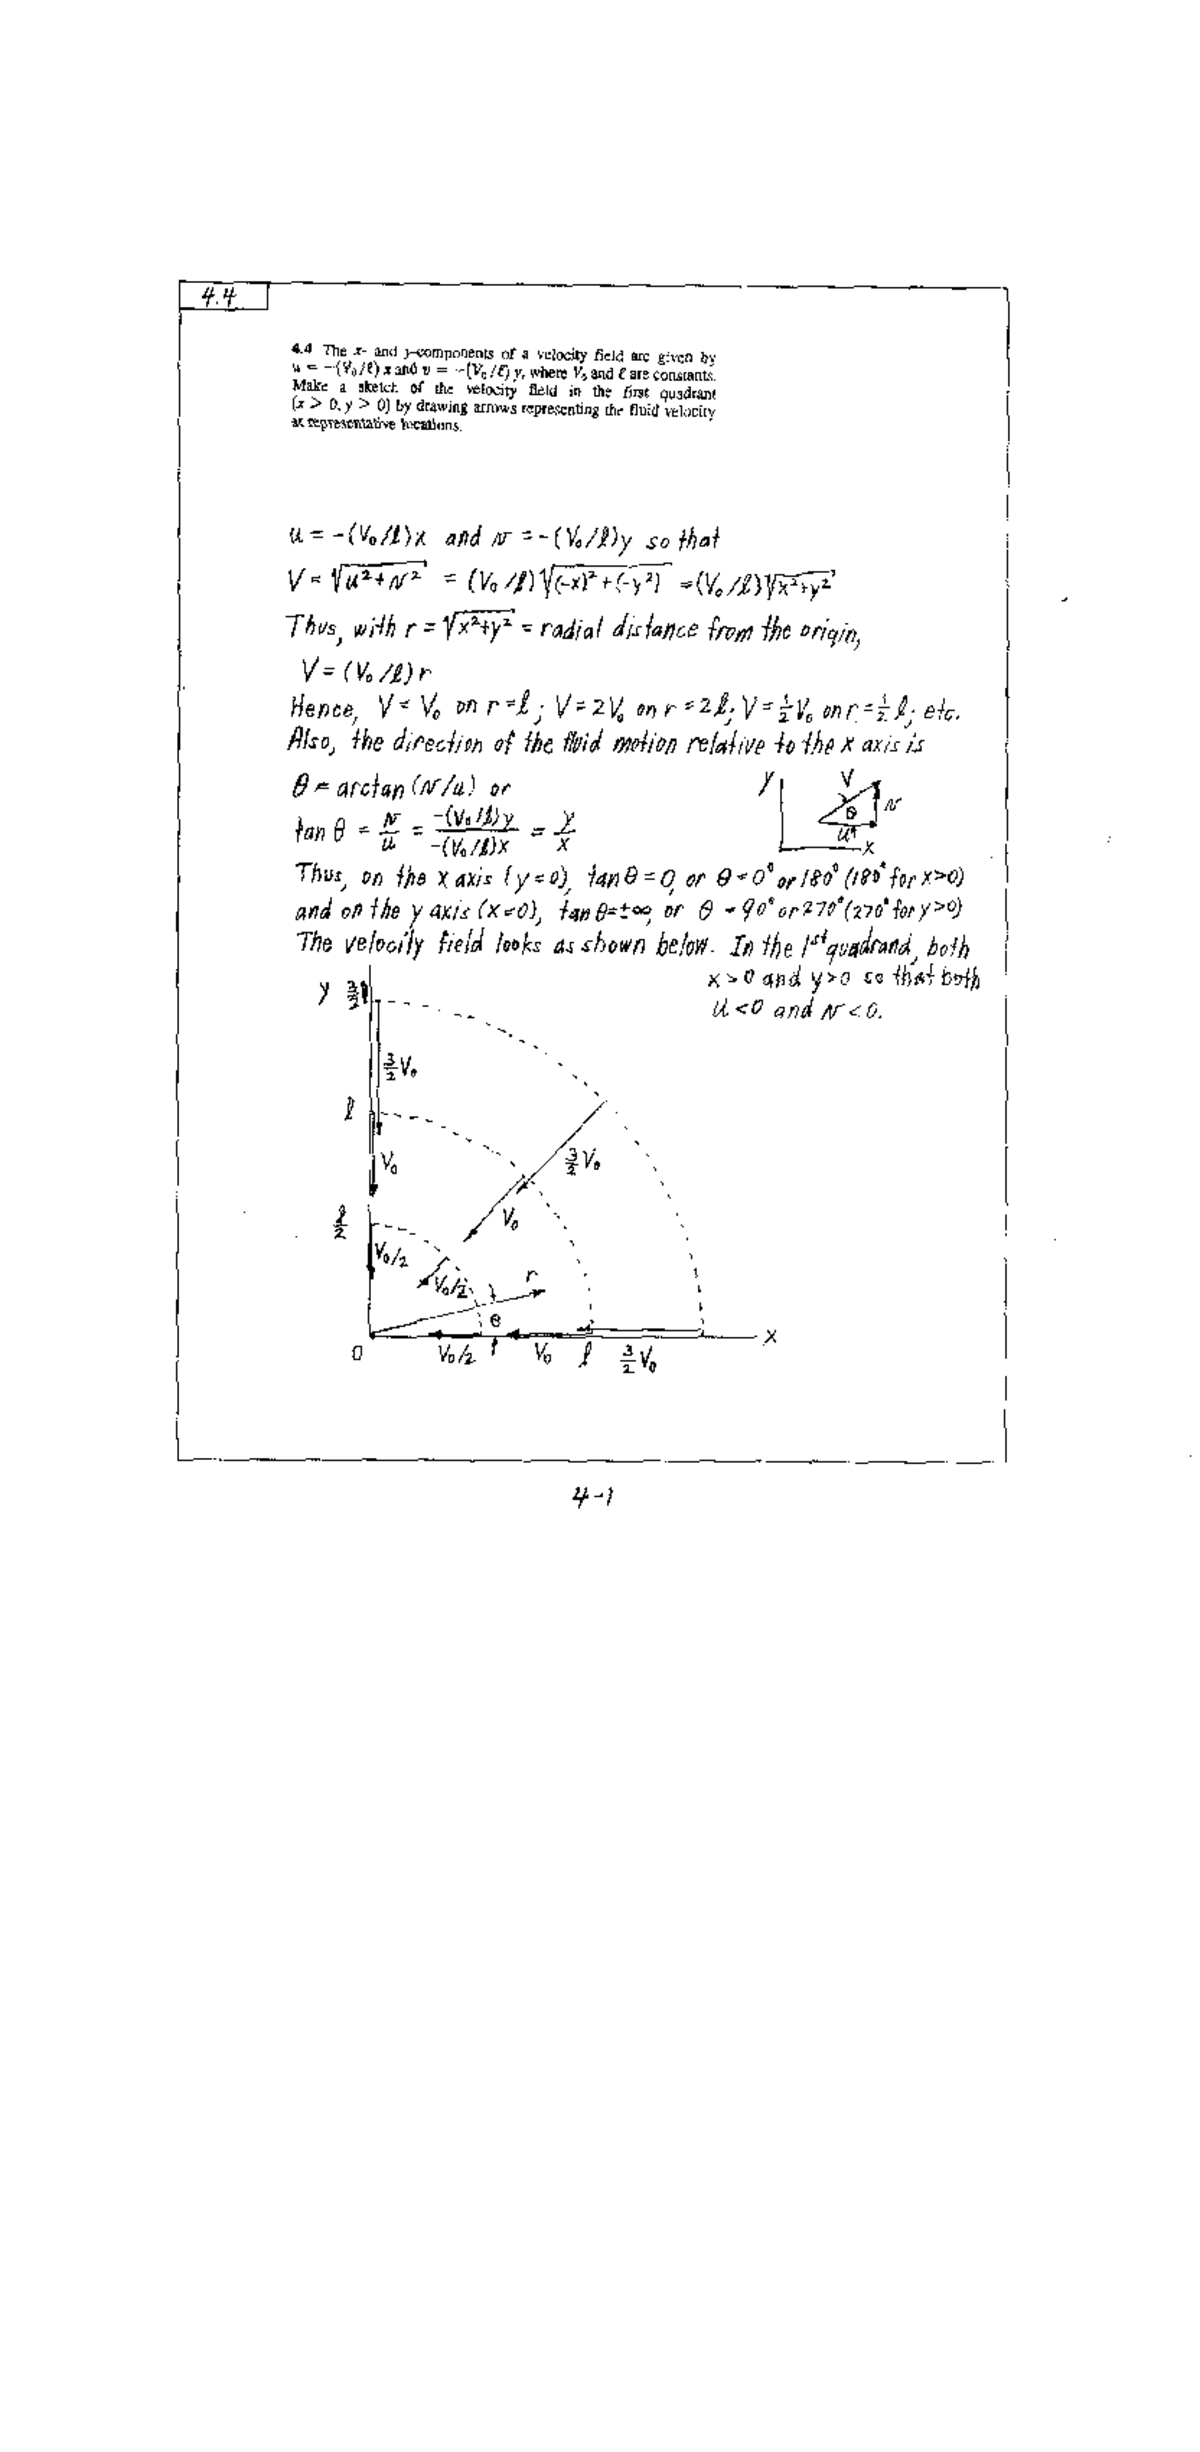 4.4
4.4 The x- and y-components of a velocity field are given by
u = -(V₀/ℓ) x and v = -(V₀/ℓ) y, where V₀ and ℓ are constants.
Make a sketch of the velocity field in the first quadrant
(x > 0, y > 0) by drawing arrows representing the fluid velocity
at representative locations.
u = -(V₀/ℓ)x and v = -(V₀/ℓ)y so that
V = √(u²+v²) = (V₀/ℓ)√((-x)²+(-y²)) = (V₀/ℓ)√(x²+y²)
Thus, with r = √(x²+y²) = radial distance from the origin,
V = (V₀/ℓ)r
Hence, V = V₀ on r = ℓ; V = 2V₀ on r = 2ℓ; V = ½V₀ on r = ½ℓ; etc.
Also, the direction of the fluid motion relative to the x axis is
θ = arctan (v/u) or
tan θ = v/u = -(V₀/ℓ)y / -(V₀/ℓ)x = y/x
y V v θ u x
Thus, on the x axis (y=0), tan θ = 0, or θ = 0° or 180° (180° for x>0)
and on the y axis (x=0), tan θ = ±∞, or θ = 90° or 270° (270° for y>0)
The velocity field looks as shown below. In the 1st quadrand, both
x>0 and y>0 so that both
u<0 and v<0.
y 3/2 ℓ
3/2 V₀
ℓ
3/2 V₀
V₀
V₀
ℓ/2
V₀/2
V₀/2 r
θ
x
0 V₀/2 V₀ ℓ 3/2 V₀
4-1